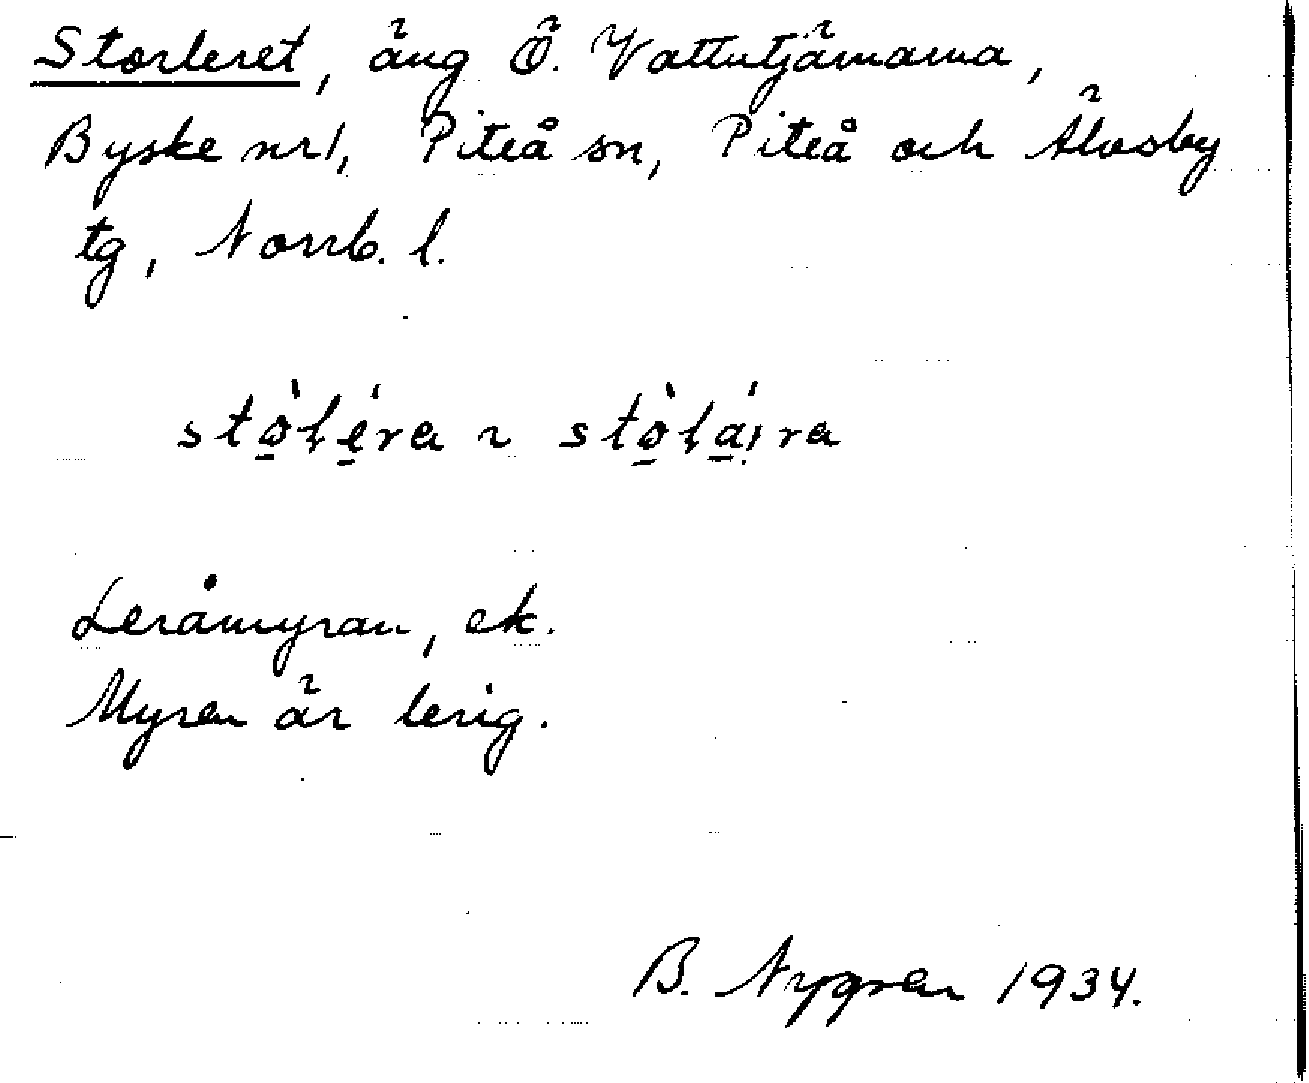 Storleret, äng Ö. Vattutjärnarna,
Byske nr 1, Piteå sn, Piteå och Älvsby
tg, Norrb. l.
stò̠ɫé̠ra ~ stò̠ɫá̠i̩ra
Leråmyran, ek.
Myren är lerig.
B. Nygren 1934.